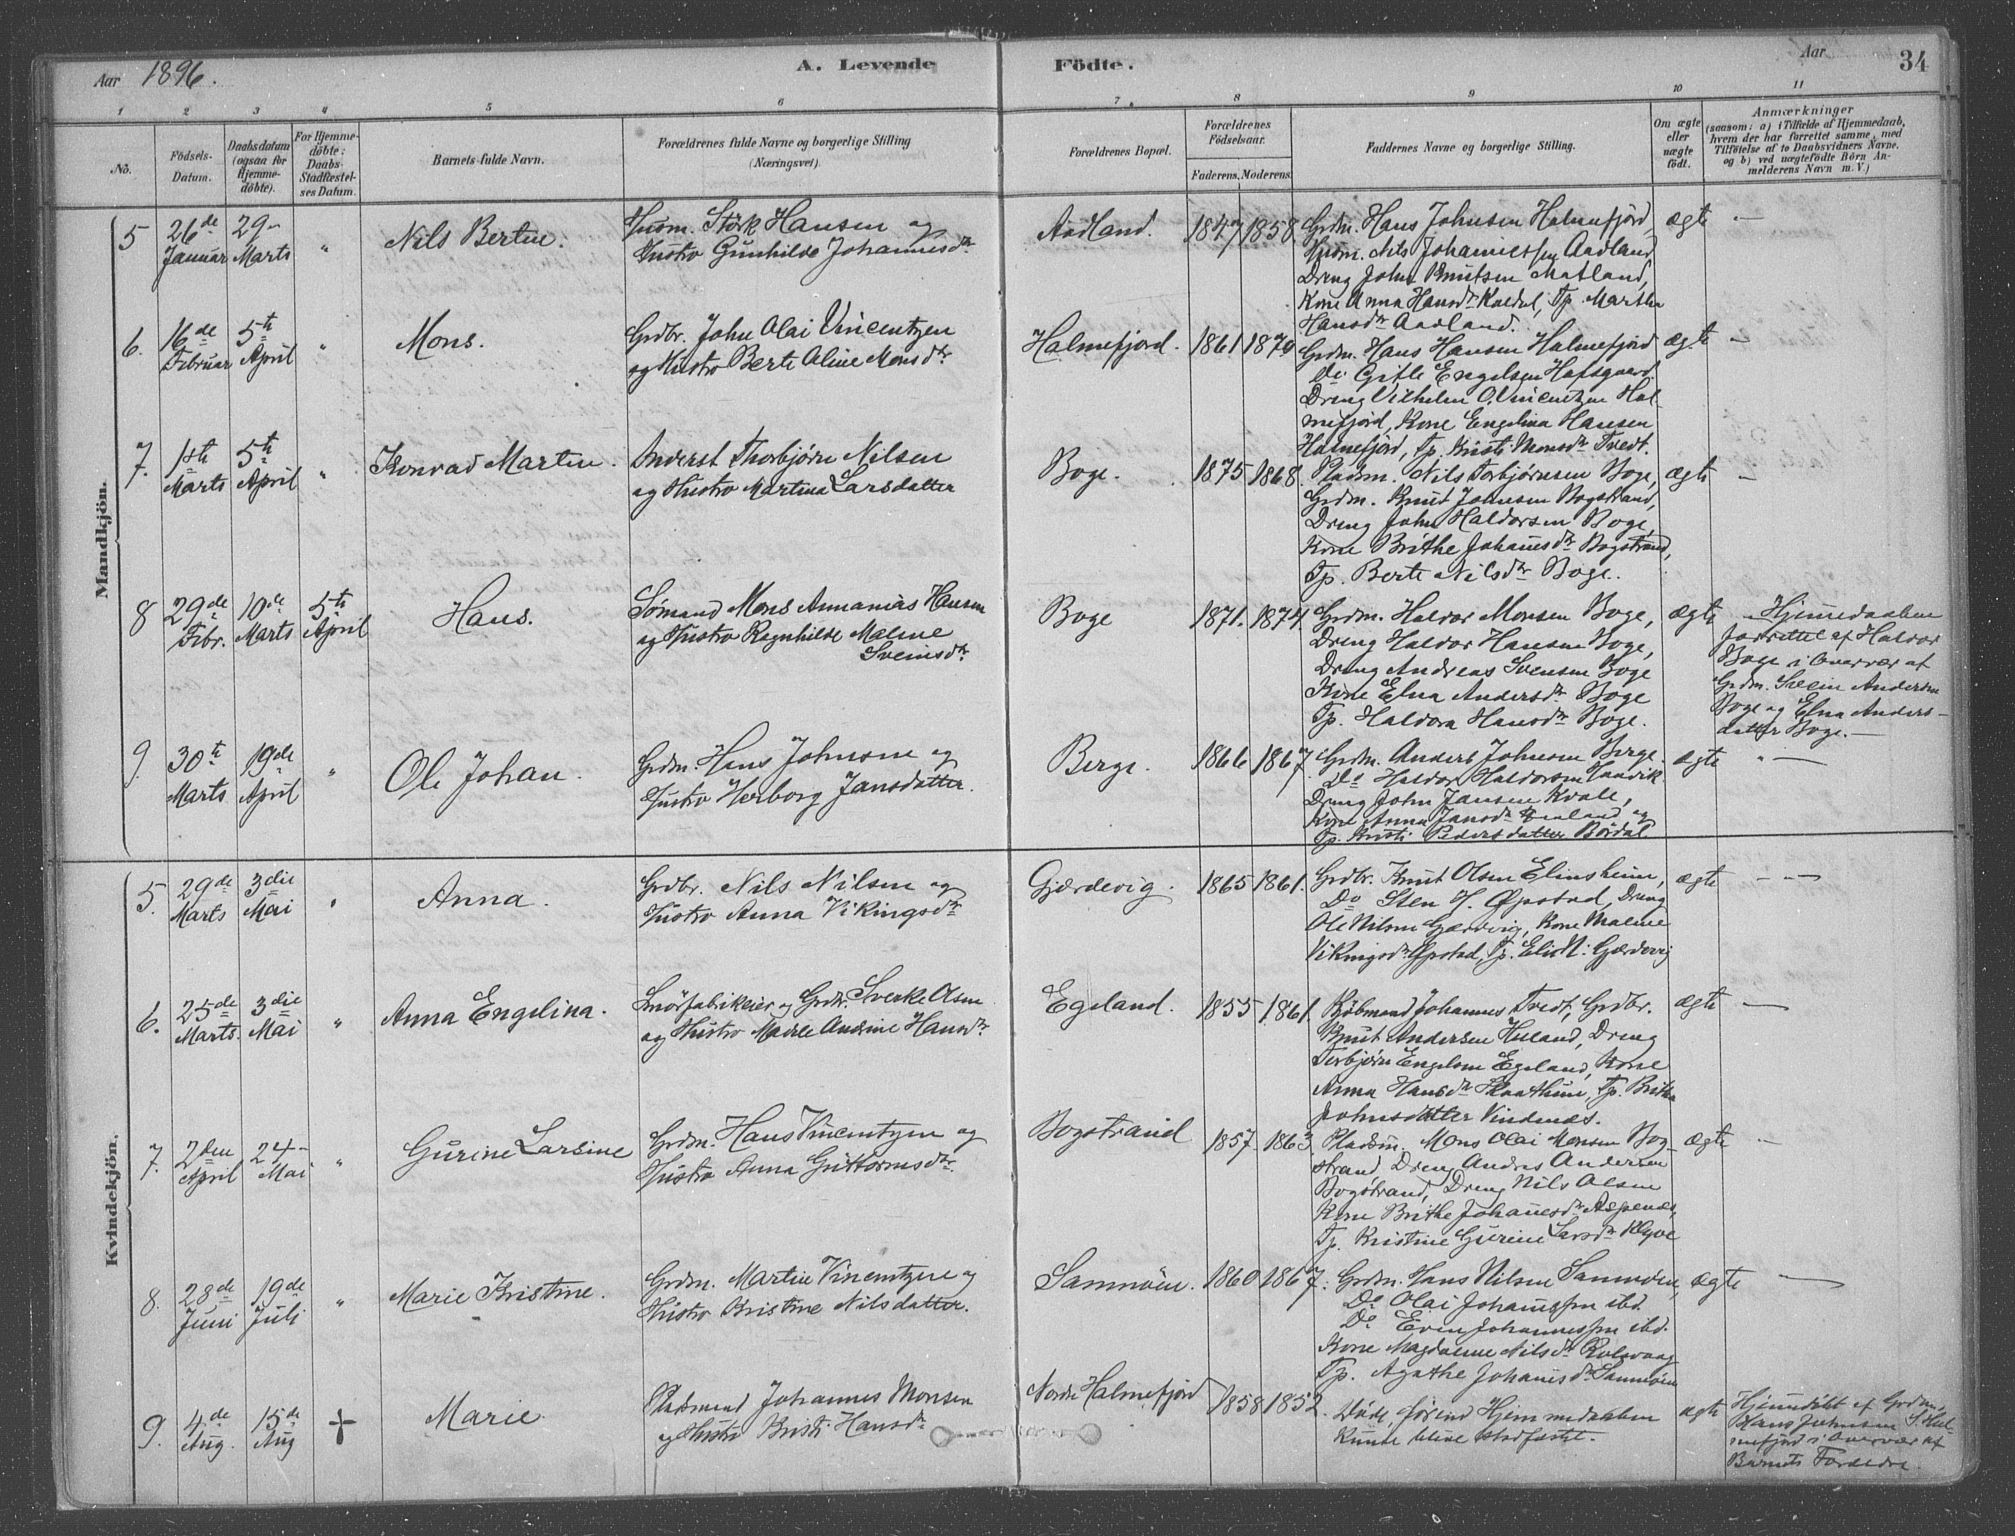 Aar 1896.
A. Levende Födte.
Aar
34
1 2 3 4 5 6 7 8 9 10 11
No.
Födsels-Datum.
Daabsdatum (ogsaa for Hjemmedöbte).
For Hjemmedöbte: Daabs-Stadfæstelses Datum.
Barnets fulde Navn.
Forældrenes fulde Navne og borgerlige Stilling (Næringsvei).
Forældrenes Bopæl.
Forældrenes Födselsaar.
Faderens. Moderens.
Faddernes Navne og borgerlige Stilling.
Om ægte eller uægte födt.
Anmærkninger (saasom: a) i Tilfælde af Hjemmedaab, hvem der har forrettet samme, med Tilföielse af to Daabsvidners Navne, og b) ved uægtefödte Börn Anmelderens Navn m. V.)
Mandkjön.
5 26de Januar 29- Marts " Nils Bertin.
Husm. Störk Hansen og
Hustro Gunhilde Johannesdtr
Aadland. 1847 1858.
Grdm. Hans Johnsen Halmefjord,
Husm. Nils Johannessen Aadland
Dreng John Knutsen Matland,
Kone Anna Hansdtr Kaldal, Tp. Martha
Hansdtr Aadland.
ægte —
6. 16de Februar 5th April " Mons.
Grdbr. John Olai Vincentzen
og Hustro Berte Oline Monsdtr
Halmefjord. 1861 1870
Grdm. Hans Hansen Halmefjord
Do Gitle Engelsen Hafsgaard
Dreng Vilhelm O. Vincentzen Hal-
mefjord, Kone Engelina Hansen
Halmefjord, Tp. Kristi Monsdtr Tvedt.
ægte —
7. 14th Marts 5th April " Konrad Martin.
Anderst Thorbjørn Nilsen
og Hustro Martina Larsdatter
Boge. 1875 1868.
Pladsm. Nils Torbjørnsen Boge,
Grdm. Knut Johnsen Bogstrand,
Dreng John Haldorsen Boge,
Kone Brithe Johanesdtr Bogstrand,
Tp. Berte Nilsdtr Boge.
ægte —
8 29de Febr. 10de Marts 5th April Hans.
Sømand Mons Annanias Hansen
og Hustro Ragnhilde Malene
Sveinsdtr
Boge 1871. 1874.
Grdm. Haldor Monsen Boge,
Dreng Haldor Hansen Boge,
Dreng Andreas Svensen Boge
Kone Elna Andersdtr Boge
Tp. Haldora Hansdtr Boge.
ægte
Hjemmedaaben
forrettet af Haldor
Boge i Overvær af
Grdm. Svein Andersen
Boge og Elna Anders-
datter Boge.—
9. 30te Marts 19de April " Ole Johan.
Grdm. Hans Johnsen og
Hustro Herborg Jansdatter.
Berge. 1866 1867
Grdm. Anders Johnsen Berge.
Do Haldor Haldorsen Haavik
Dreng John Jansen Kvale,
Kone Anna Jansdtr og
Tp. Kristi Pedersdatter Børdal
ægte " —
Kvindekjön.
5. 29de Marts 3die Mai " Anna.
Grdbr. Nils Nilsen og
Hustro Anna Vikingsdtr
Gjærdevig. 1865 1861.
Grdbr. Knut Olsen Elinsheim,
Do Sten J. Øpstad, Dreng
Ole Nilsen Gjærdevig, Kone Malene
Vikingsdtr Øpstad, Tp. Elis N. Gjærdevig
ægte — —
6. 25de Marts. 3die Mai " Anna Engelina.
Smörfabrikeier og Grdbr. Sverke Olsen
og Hustro Maele Andrine Hansdtr
Egeland. 1855 1861.
Købmand Johannes Tvedt, Grdbr.
Knut Andersen Heiland, Dreng
Torbjørn Engelsen Egeland, Kone
Anna Hansdtr Skaathun, Tp. Brithe
Johnsdatter Vindenes.
ægte —
7. 2den April 24- Mai " Gurine Larsine
Grdm. Hans Vincentzen og
Hustro Anna Guttormsdtr.
Bogstrand 1857. 1863
Pladsm. Mons Olai Monsen Bog-
strand Dreng Andreas Andersen
Bogstrand, Dreng Nils Olsen
Kone Brithe Johanesdtr Aspenæs,
Tp. Kristine Gurine Larsdtr Klyve
ægte —
8. 28de Juni 19de Juli " Marie Kristine.
Grdm. Martin Vincentzen og
Hustro Kristine Nilsdatter.
Samnöen. 1860 1867.
Grdm. Hans Nilsen Samnöen,
Do Olai Johannessen ibd.
Do Even Johannessen ibd.
Kone Magdalene Nilsdtr Rolsvaag
Tp. Agathe Johanesdtr Samnöen
ægte —
9. 4de Aug. 15de Aug † Marie.
Pladsmand Johannes Monsen
og Hustro Kristi Hansdtr
Nordre Halmefjord 1858 1852.
Döde, förend Hjemmedaaben
kunde blive stadfæstet.
ægte
Hjemmedöbt af Grdm.
Hans Johnsen S. Hal-
mefjord i Overvær af
Barnets Forældre.